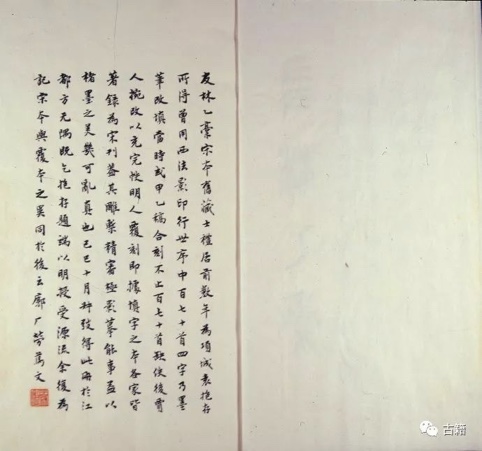 友林乙稾宋本舊藏士禮居前數年為項城袁抱存
所得曾用西法影印行世序中百七十首四字乃墨
筆改填當時或甲乙稿合刻不止百七十首缺佚後賈
人挖改以充完帙明人覆刻即據填字之本各家皆
著錄為宋刊蓋其雕槧精審極影摹能事益以
楮墨之美幾可亂真也己巳十月仲弢得此冊於江
都方无隅既乞抱存題端以明授受源流余復為
記宋本與覆本之異同於後云廓厂勞篤文
古籍